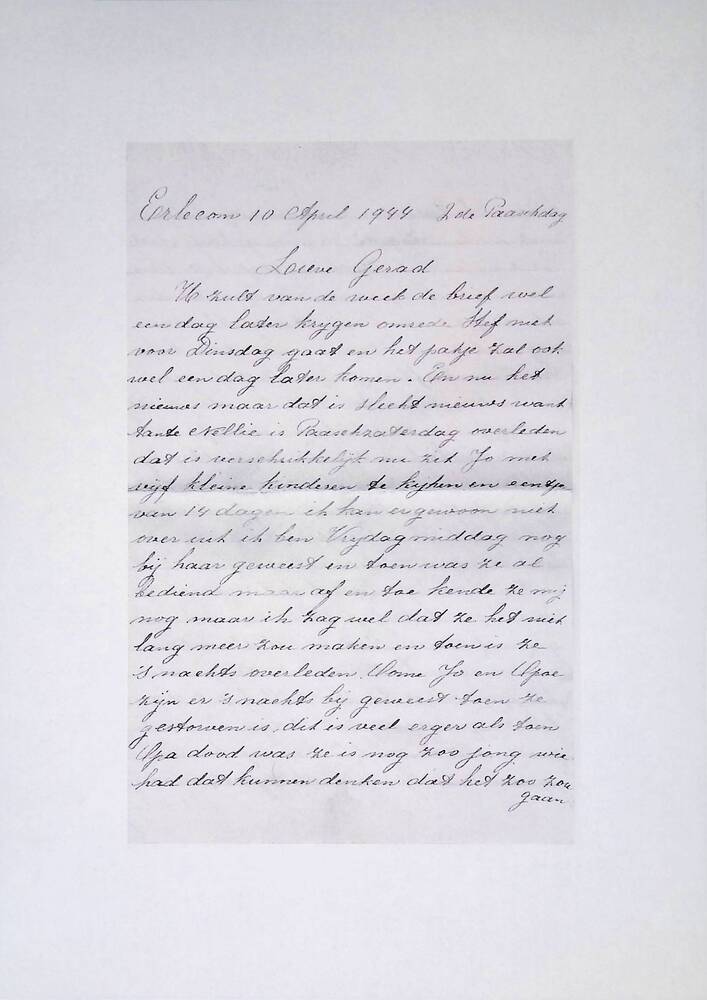 Erlecom 10 April 1944 2de Paaschdag
Lieve Gerad
U zult van de week de brief wel
een dag later krygen omrede Stef niet
voor Dinsdag gaat en het pakje zal ook
wel een dag later komen. En nu het
nieuws maar dat is slecht nieuws want
tante Nellie is Paaschzaterdag overleden
dat is verschrikkelijk nu zit Jo met
vijf kleine kinderen te kyken en eentje
van 14 dagen ik kan er gewoon niet
over uit ik ben Vrydagmiddag nog
bij haar geweest en toen was ze al
bediend maar af en toe kende ze mij
nog maar ik zag wel dat ze het niet
lang meer zou maken en toen is ze
's nachts overleden. Ome Jo en Opoe
zijn er 's nachts bij geweest toen ze
gestorven is, dit is veel erger als toen
Opa dood was ze is nog zoo jong wie
had dat kunnen denken dat het zoo zou
gaan